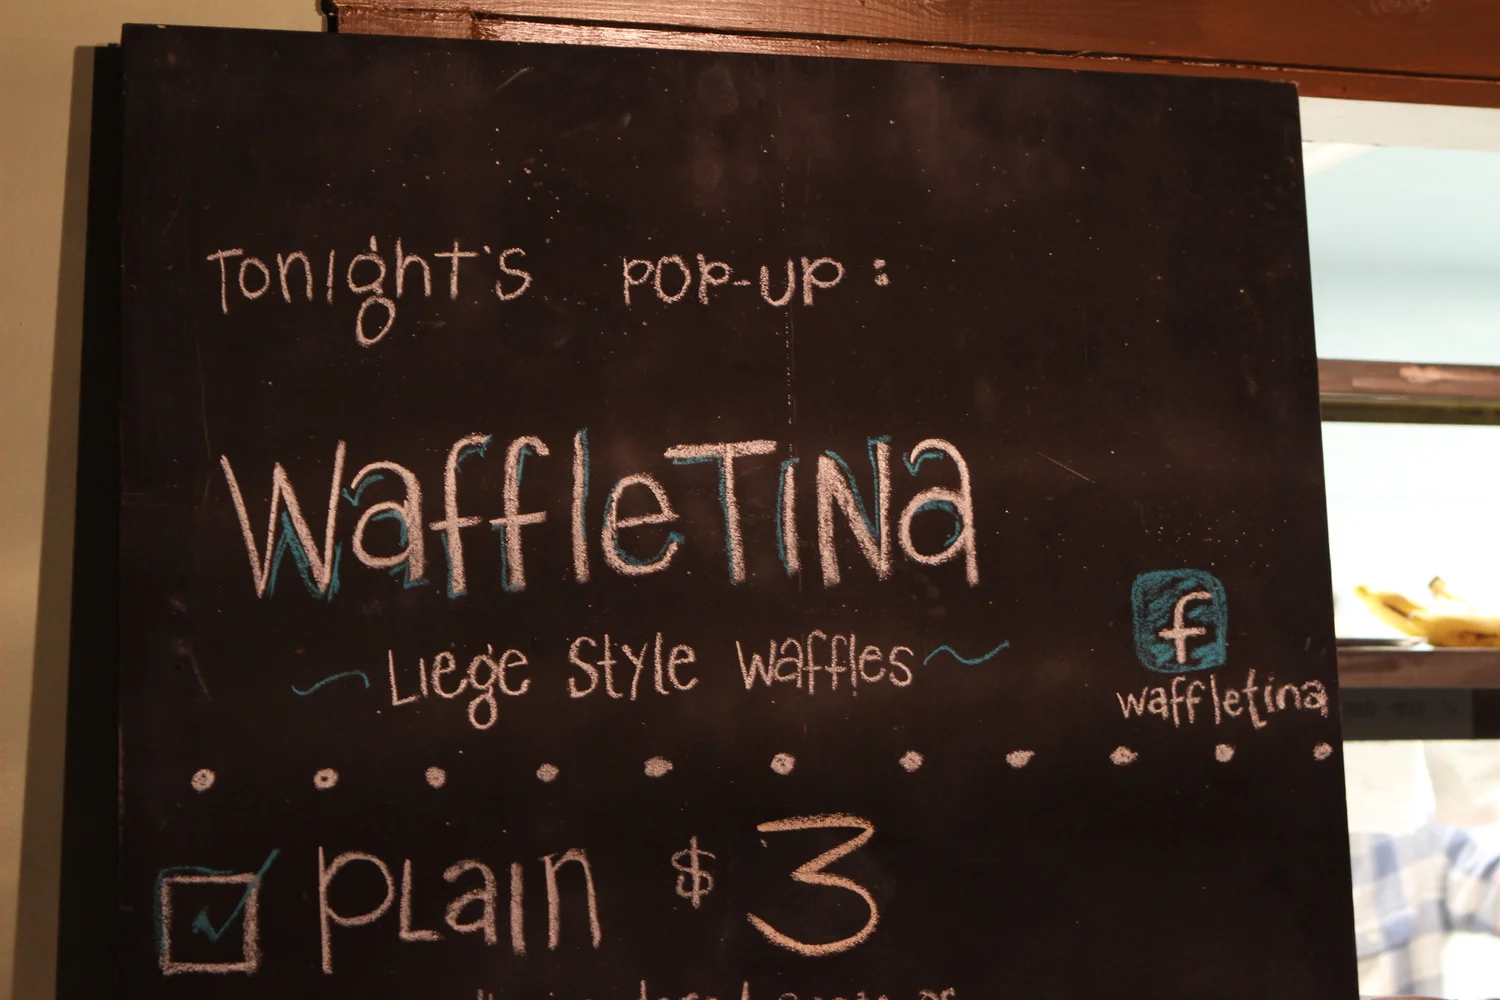 Tonight's POP-UP:
WaffleTINa
Liège Style Waffles
f
waffletina
PLain $3